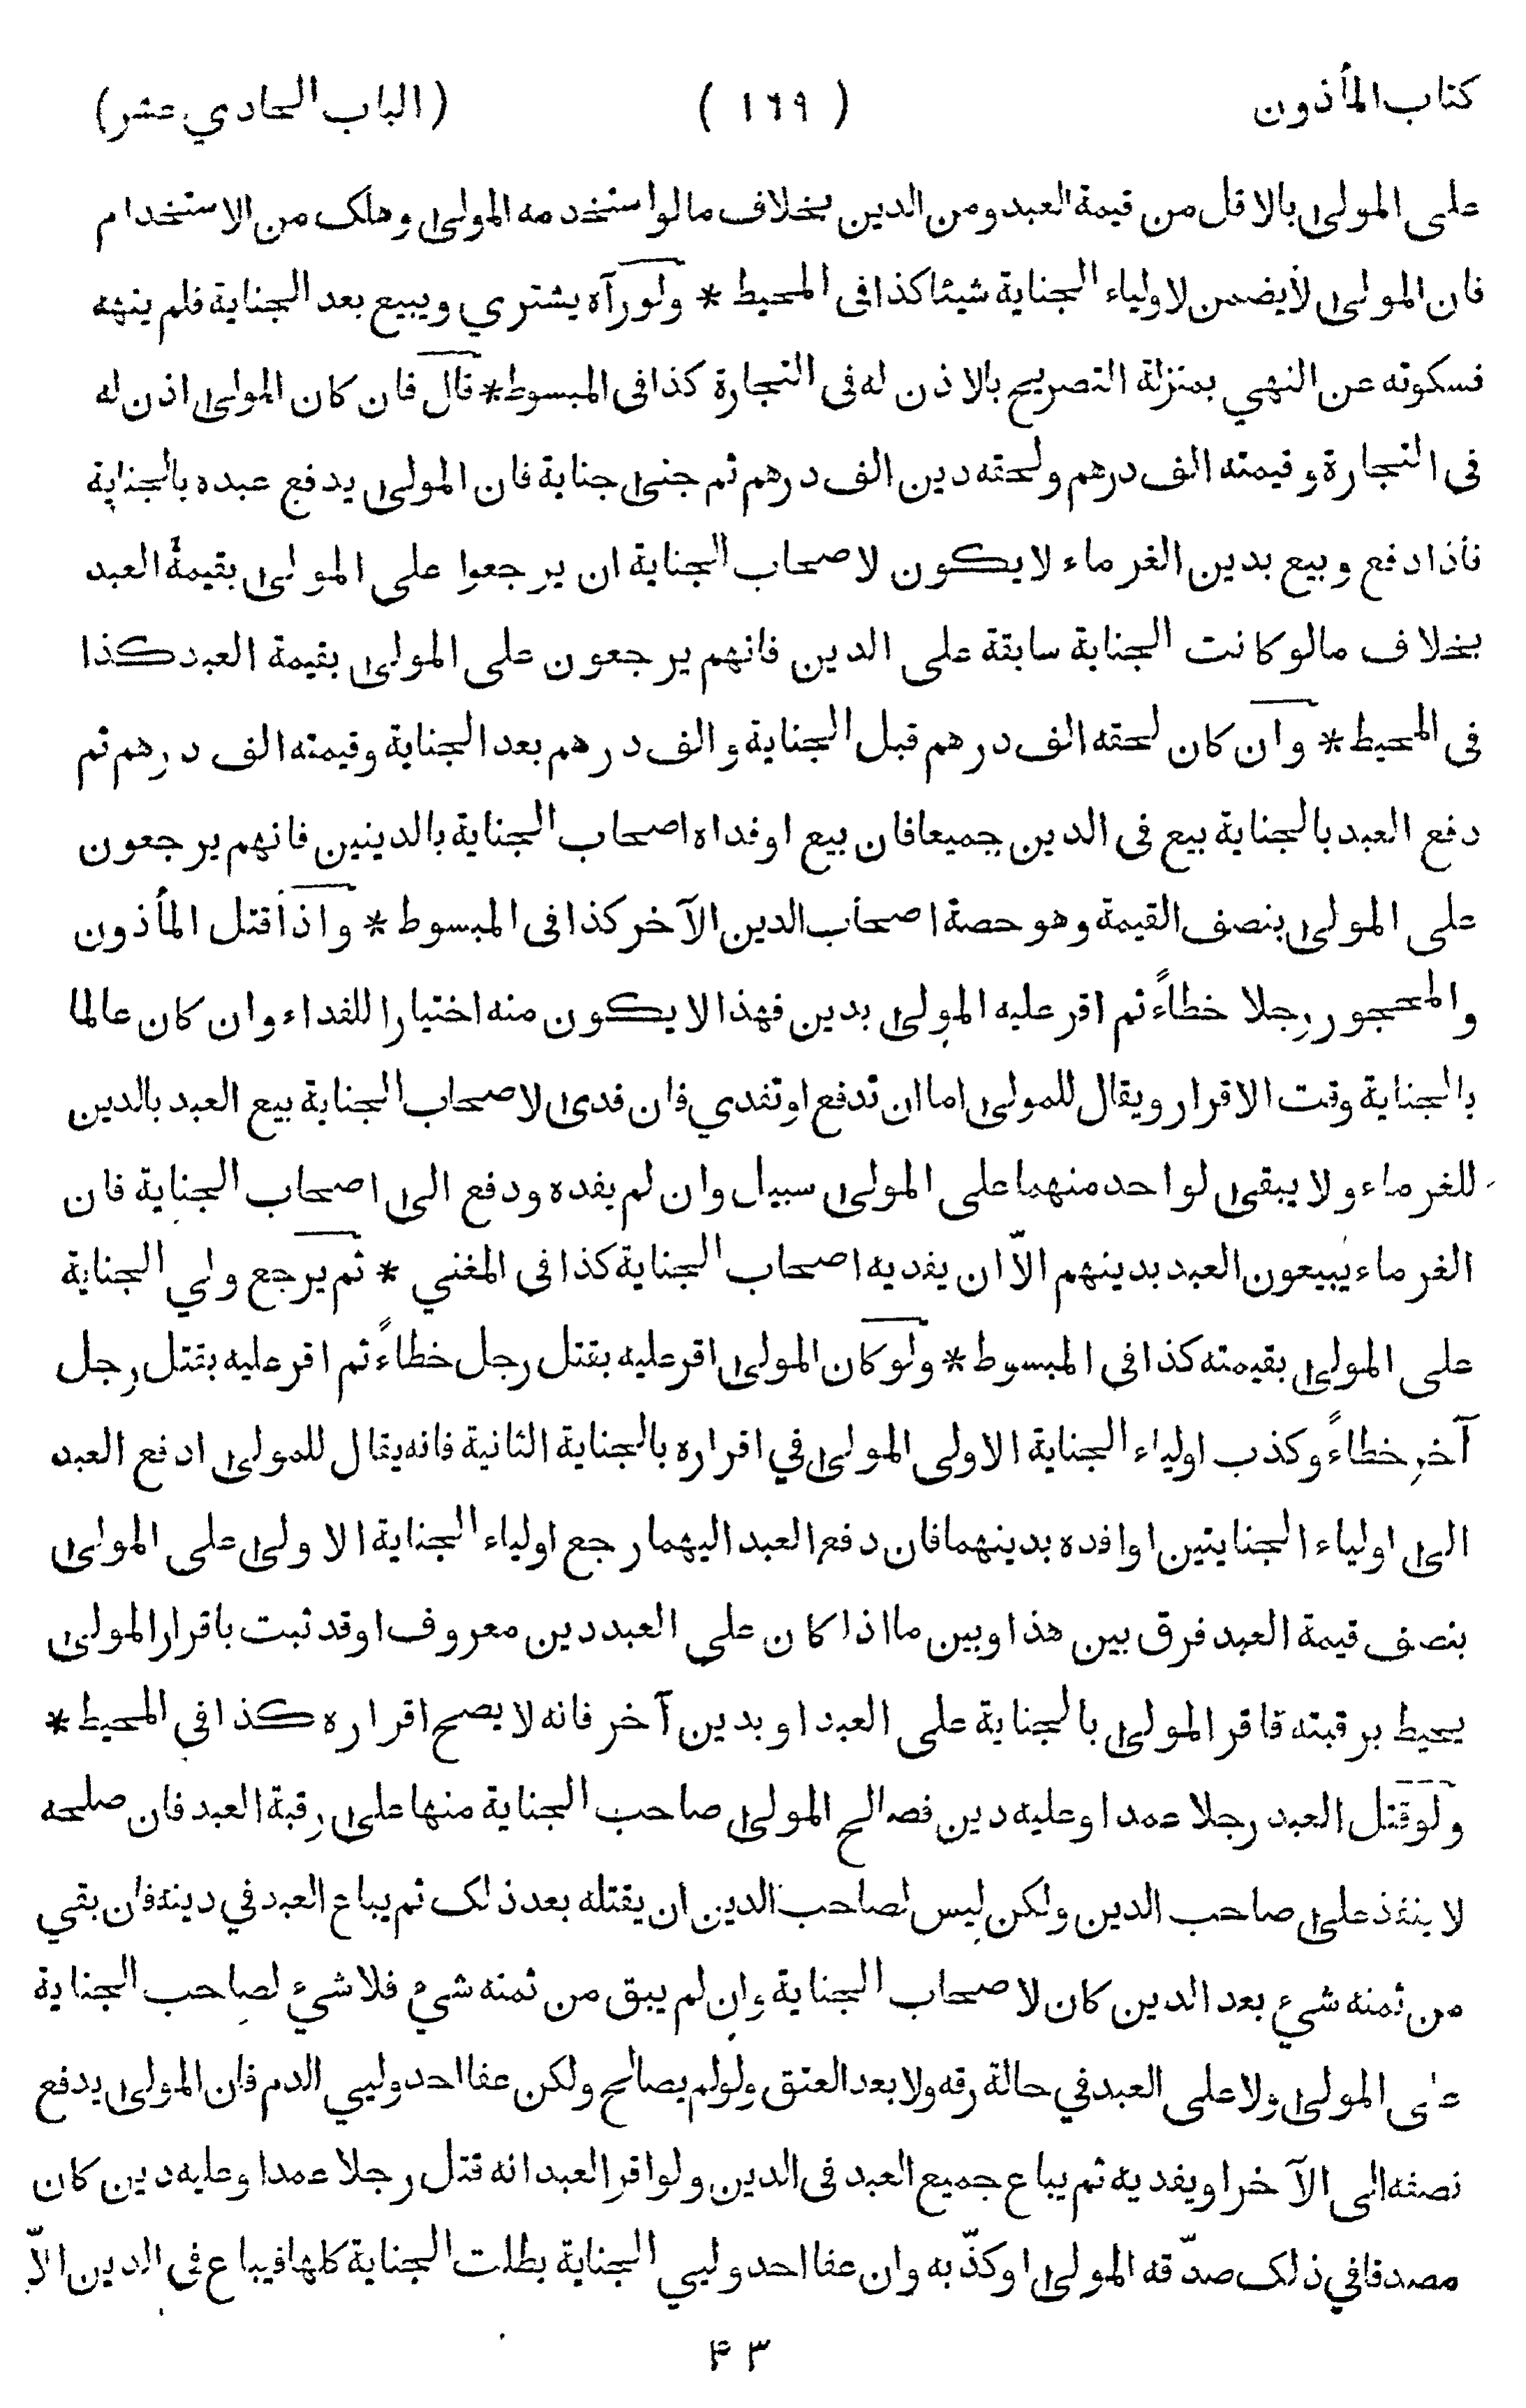 كتاب المأذون
( ١٦٩ )
(الباب الحادي عشر)
على المولى بالاقل من قيمة العبد ومن الدين بخلاف مالو استخدمه المولى وهلك من الاستخدام
فان المولى لايضمن لاولياء الجناية شيئا كذا فى المحيط * ولو رآه يشتري ويبيع بعد الجناية فلم ينهه
فسكوته عن النهي بمنزلة التصريح بالاذن له فى التجارة كذا فى المبسوط * قال فان كان المولى اذن له
فى التجارة وقيمته الف درهم ولحقه دين الف درهم ثم جنى جناية فان المولى يدفع عبده بالجناية
فاذا دفع وبيع بدين الغرماء لايكون لاصحاب الجناية ان يرجعوا على المولى بقيمة العبد
بخلاف مالو كانت الجناية سابقة على الدين فانهم يرجعون على المولى بقيمة العبد كذا
فى المحيط * وان كان لحقه الف درهم قبل الجناية والف درهم بعد الجناية وقيمته الف درهم ثم
دفع العبد بالجناية بيع فى الدين جميعا فان بيع او فداه اصحاب الجناية بالدينين فانهم يرجعون
على المولى بنصف القيمة وهو حصة اصحاب الدين الآخر كذا فى المبسوط * واذا قتل المأذون
والمحجور رجلا خطاءً ثم اقر عليه المولى بدين فهذا لايكون منه اختيارا للفداء وان كان عالما
بالجناية وقت الاقرار ويقال للمولى اما ان تدفع او تفدي فان فدى لاصحاب الجناية بيع العبد بالدين
للغرماء ولا يبقى لواحد منهما على المولى سبيل وان لم يفده ودفع الى اصحاب الجناية فان
الغرماء يبيعون العبد بدينهم الّا ان يفديه اصحاب الجناية كذا فى المغني * ثم يرجع ولي الجناية
على المولى بقيمته كذا فى المبسوط * ولو كان المولى اقر عليه بقتل رجل خطاءً ثم اقر عليه بقتل رجل
آخر خطاءً وكذب اولياء الجناية الاولى المولى في اقراره بالجناية الثانية فانه يقال للمولى ادفع العبد
الى اولياء الجنايتين او افده بدينهما فان دفع العبد اليهما رجع اولياء الجناية الاولى على المولى
بنصف قيمة العبد فرق بين هذا وبين ما اذا كان على العبد دين معروف او قد ثبت باقرار المولى
يحيط برقبته فاقر المولى بالجناية على العبد او بدين آخر فانه لا يصح اقراره كذا في المحيط *
ولو قتل العبد رجلا عمدا وعليه دين فصالح المولى صاحب الجناية منها على رقبة العبد فان صلحه
لاينفذ على صاحب الدين ولكن ليس لصاحب الدين ان يقتله بعد ذلك ثم يباع العبد في دينه فان بقي
من ثمنه شيء بعد الدين كان لاصحاب الجناية وان لم يبق من ثمنه شيء فلا شيء لصاحب الجناية
على المولى ولا على العبد في حالة رقه ولا بعد العتق ولو لم يصالح ولكن عفا احد وليي الدم فان المولى يدفع
نصفه الى الآخر او يفديه ثم يباع جميع العبد فى الدين ولو اقر العبد انه قتل رجلا عمدا وعليه دين كان
مصدقا في ذلك صدّقه المولى او كذّبه وان عفا احد وليي الجناية بطلت الجناية كلها فيباع فى الدين الّا
۴۳